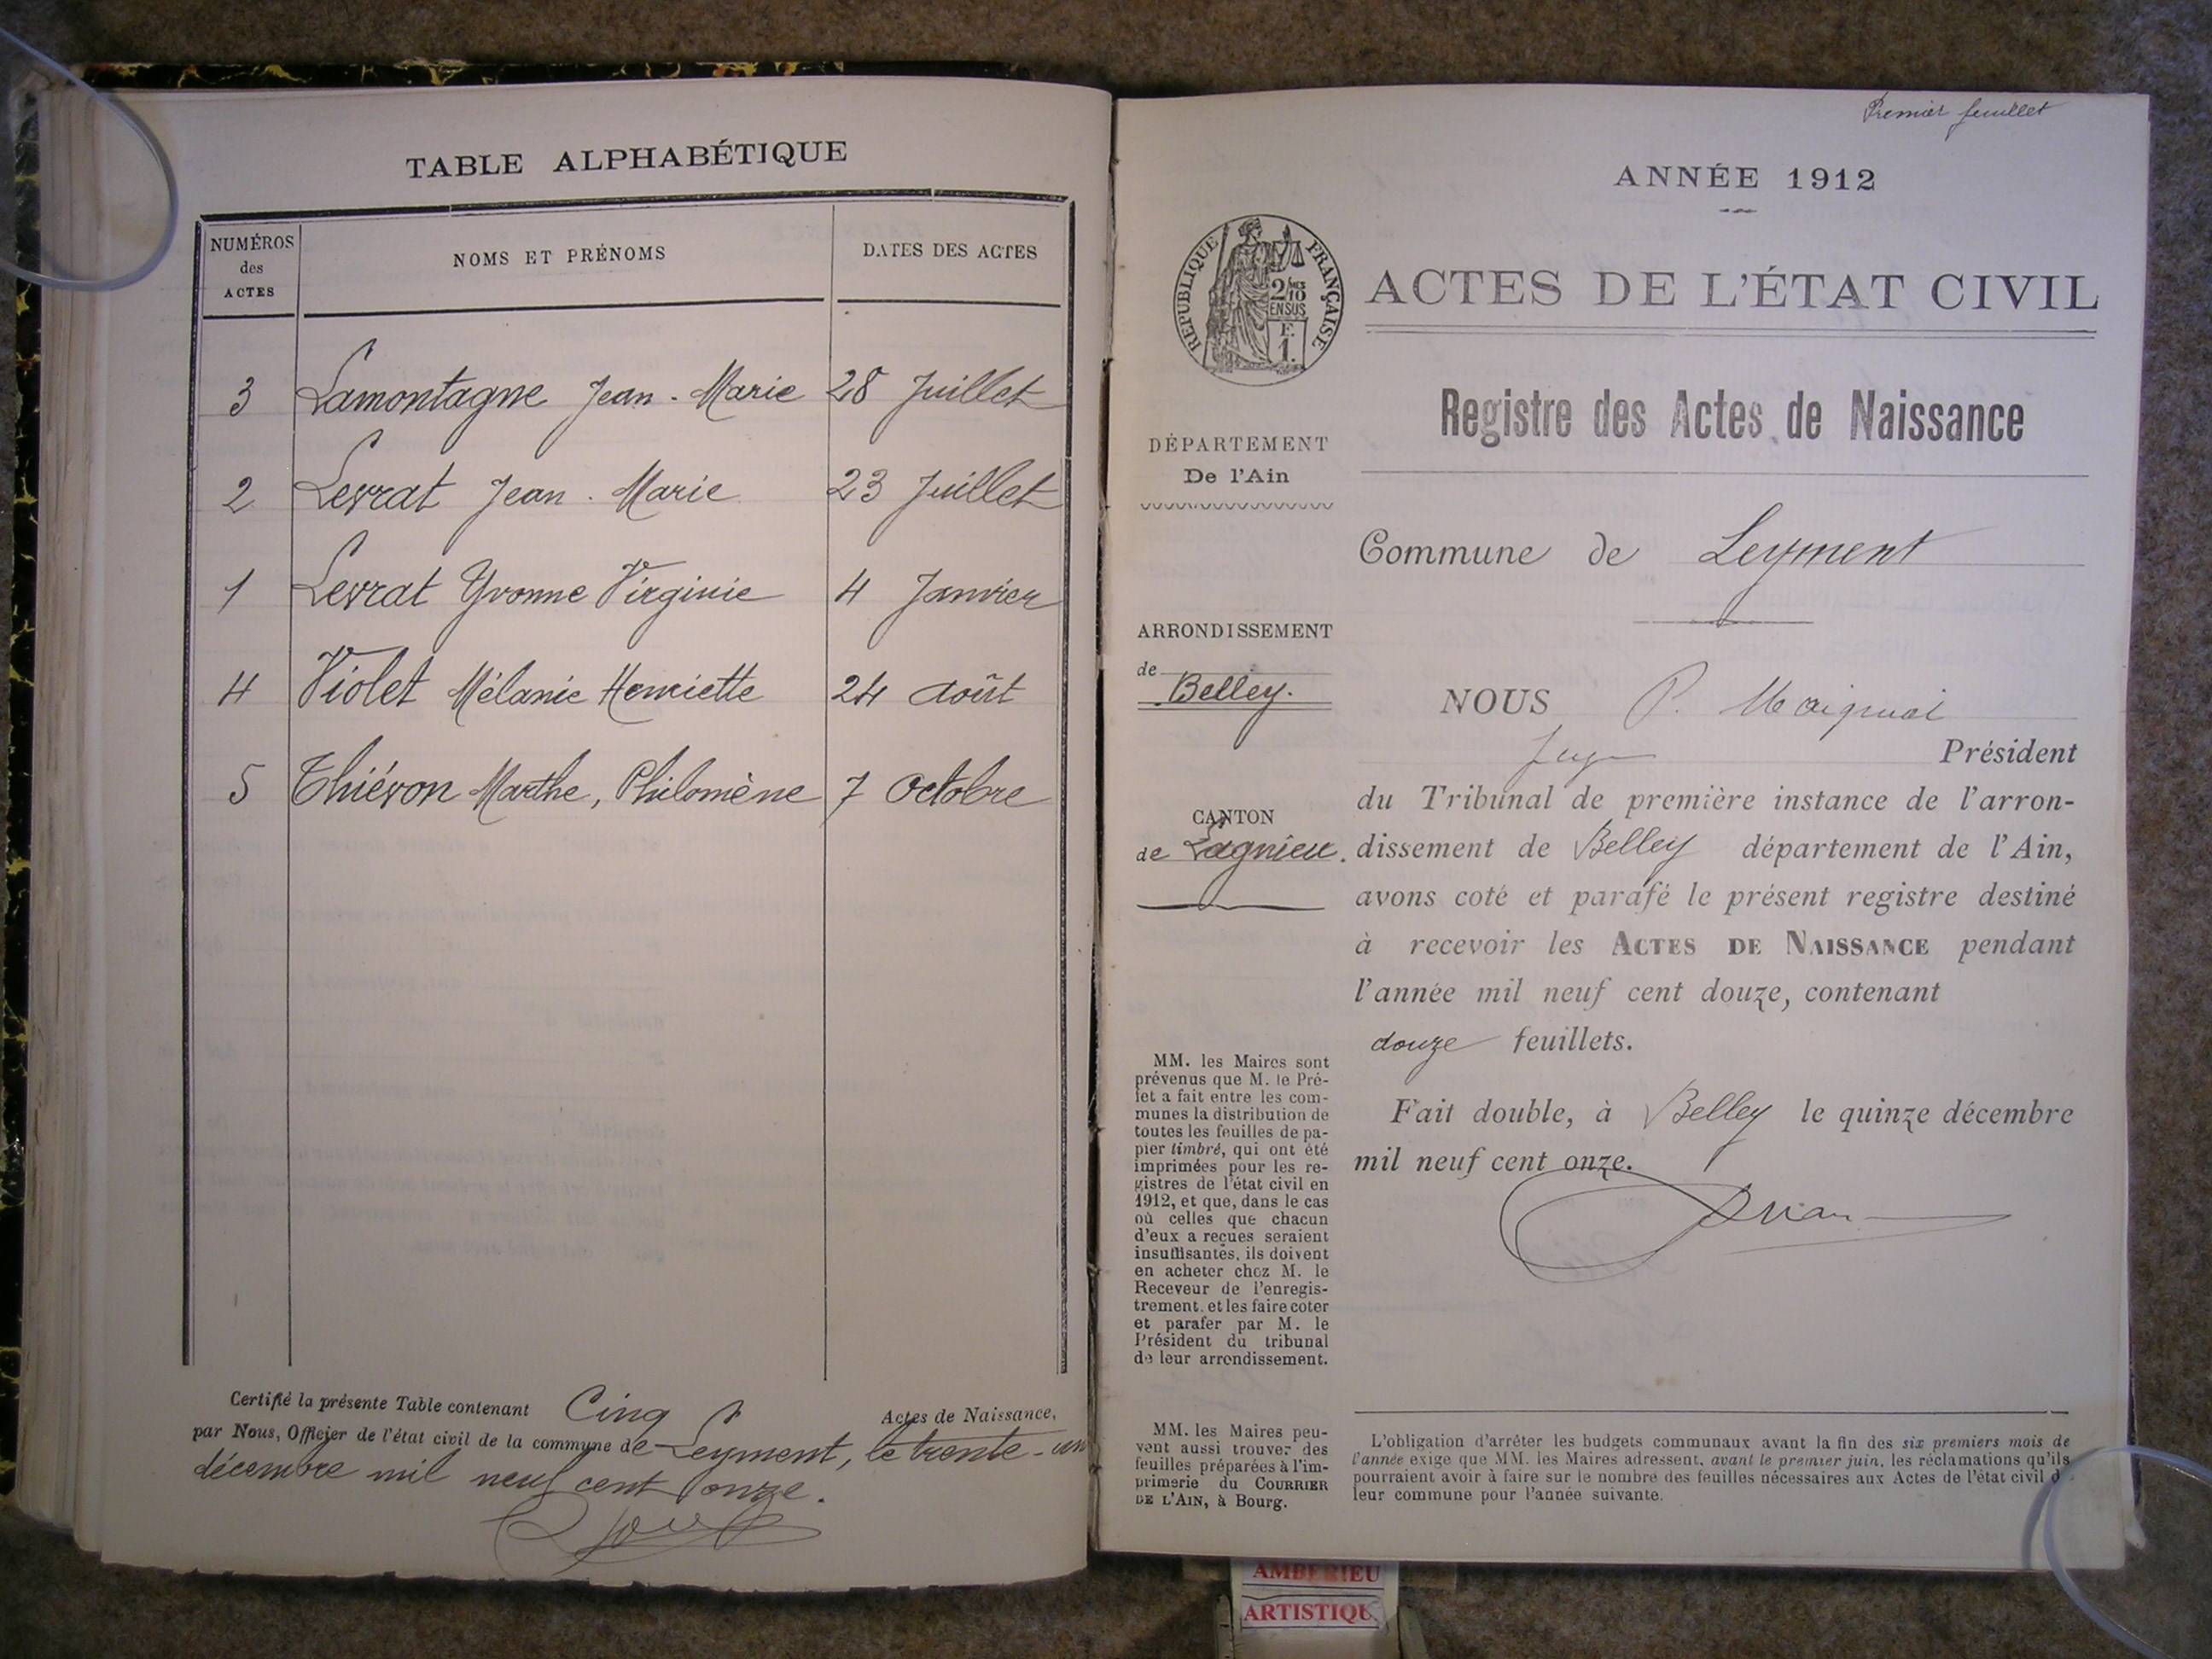 TABLE ALPHABÉTIQUE
NUMÉROS
des
ACTES
NOMS ET PRÉNOMS
DATES DES ACTES
3 Lamontagne Jean-Marie 28 Juillet
2 Levrat Jean-Marie 23 Juillet
1 Levrat Yvonne Virginie 4 Janvier
4 Violet Mélanie Henriette 24 août
5 Thiévon Marthe, Philomène 7 Octobre
Certifié la présente Table contenant Cinq Actes de Naissance,
par Nous, Officier de l'état civil de la commune de Leyment, le trente-un
décembre mil neuf cent onze.
Premier feuillet
ANNÉE 1912
RÉPUBLIQUE FRANÇAISE
2/10
EN SUS
F.
1.
ACTES DE L'ÉTAT CIVIL
Registre des Actes de Naissance
DÉPARTEMENT
De l'Ain
Commune de Leyment
ARRONDISSEMENT
de
Belley.
CANTON
de Lagnieu.
NOUS P.
Juge Président
du Tribunal de première instance de l'arron-
dissement de Belley département de l'Ain,
avons coté et parafé le présent registre destiné
à recevoir les ACTES DE NAISSANCE pendant
l'année mil neuf cent douze, contenant
douze feuillets.
Fait double, à Belley le quinze décembre
mil neuf cent onze.
MM. les Maires sont
prévenus que M. le Pré-
fet a fait entre les com-
munes la distribution de
toutes les feuilles de pa-
pier timbré, qui ont été
imprimées pour les re-
gistres de l'état civil en
1912, et que, dans le cas
où celles que chacun
d'eux a reçues seraient
insuffisantes, ils doivent
en acheter chez M. le
Receveur de l'enregis-
trement, et les faire coter
et parafer par M. le
Président du tribunal
de leur arrondissement.
MM. les Maires peu-
vent aussi trouver des
feuilles préparées à l'im-
primerie du COURRIER
DE L'AIN, à Bourg.
L'obligation d'arrêter les budgets communaux avant la fin des six premiers mois de
l'année exige que MM. les Maires adressent, avant le premier juin, les réclamations qu'ils
pourraient avoir à faire sur le nombre des feuilles nécessaires aux Actes de l'état civil d
leur commune pour l'année suivante.
AMBERIEU
ARTISTIQU